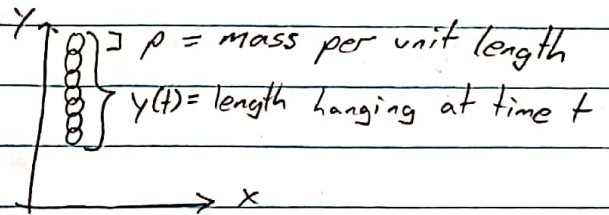 Y
ρ = mass per unit length
y(t) = length hanging at time t
x